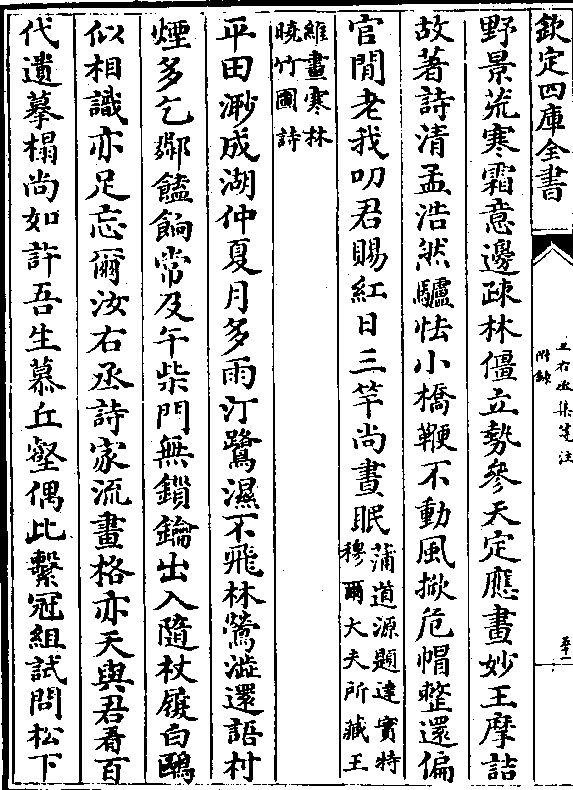 欽定四庫全書
王右丞集箋注
附録
至一
野景荒寒霜意邊疎林僵立勢參天定應畫妙王摩詰
故著詩清孟浩然驢怯小橋鞭不動風掀危帽整還偏
官閒老我叨君賜紅日三竿尚晝眠
蒲道源題達實特
穆爾大夫所藏王
維畫寒林
曉竹圖詩
平田渺成湖仲夏月多雨汀鷺濕不飛林鶯澁還語村
煙多乞鄰饁餉常及午柴門無鎖鑰出入隨杖屨白鷗
似相識亦足忘爾汝右丞詩家流畫格亦天與君看百
代遺摹榻尚如許吾生慕丘壑偶此繫冠組試問松下